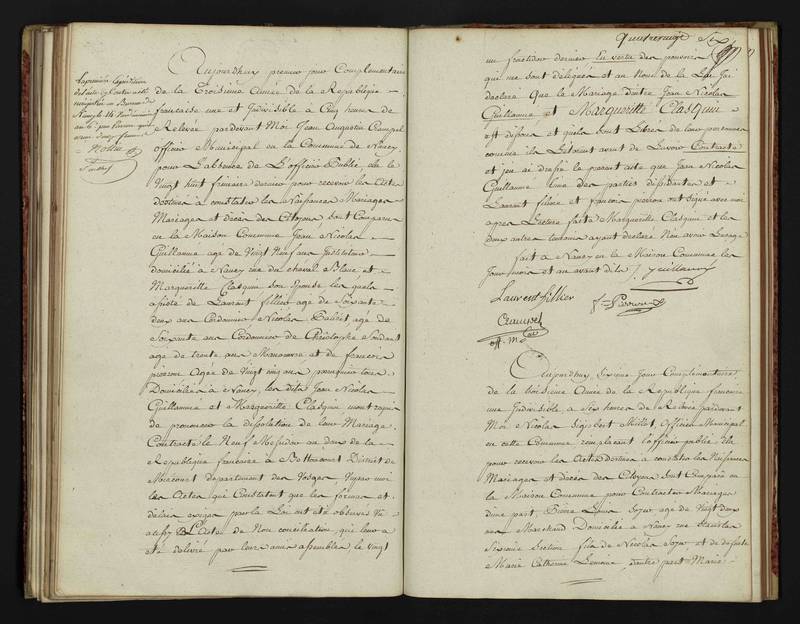 Aujourdhuy premier jour Complementaire
de la troisième Année de la Republique
francaise une et Indivisible à Cinq heures de
Relevée pardevant Moi Jean Augustin Crampel
officier Municipal en la Commune de Nancy
pour L'absence de L'officier Public, élu le
vingt huit frimaire dernier pour recevoir les Actes
destinés à constater les Naissances Mariages
Mariages et décès des Citoyens, sont Comparus
en la Maison Commune Jean Nicolas
Guillaume age de Vingt Neuf ans Instituteur
domicilié à Nancy rue du cheval Blanc, et
Margueritte Clasquin son Epouse les quels
assistés de Laurent fillier age de Soixante
deux ans Cordonnier Nicolas age de
Soixante ans Cordonnier de Christophe
age de trente ans Manoeuvre et de francois
pierron Agée de Vingt cinq ans tous
Domiciliés à Nancy, les dits Jean Nicolas
Guillaume et Margueritte Clasquin mont requis
de prononcer la dissolution de leur Mariage,
Contracté le Neuf Messidor an deux de la
Republique francaise à District de
departement des Vosges
les Actes qui Constatent que les formes et
délais exigés par la Loi ont été observés Vu
aussy L'Acte de Non conciliation, qui leur a
été délivré par leurs amis assemblés le Vingt
quatrevingt Six
un fructidor dernier En vertu des pouvoirs
qui me sont délégués et au Nom de la Loi J'ai
declaré Que le Mariage d'entre Jean Nicolas
Guillaume et Margueritte Clasquin
est dissous et quels sont Libres de leurs personnes
comme ils Létoient avant de Lavoir Contracté
et j'en ai dressé le present acte que Jean Nicolas
Guillaume lune des parties et
Laurent filiere et francois pierron ont signé avec moi
apres Lecture faite Margueritte Clasquin et les
deux autres temoins ayant declaré N'en avoir Lusage
fait à Nancy en la Maison Commune les
Jour mois et an avant dits J. Guillaume
Laurent fillier
f. Pierron
Crampel
off. M.
Aujourdhuy, Sixieme jour Complementaire
de la troisième Année de la Republique francaise
une Indivisible, à Six heures de Relevée pardevant
Moi Nicolas Sigisbert Millot, Officier Municipal
en cette Commune remplacant l'officier public élu
pour recevoir les Actes Destinés à constater les Naissances
Mariages et décès des Citoyens Sont Comparus en
la Maison Commune pour Contracter Mariage
dune part, Pierre Louis age de Vingt Deux
ans Marchand Domicilié à Nancy rue Stanislas
Sixieme Section fils de Nicolas et de defunte
Marie Catherine Lemoine, d'autre part Marie